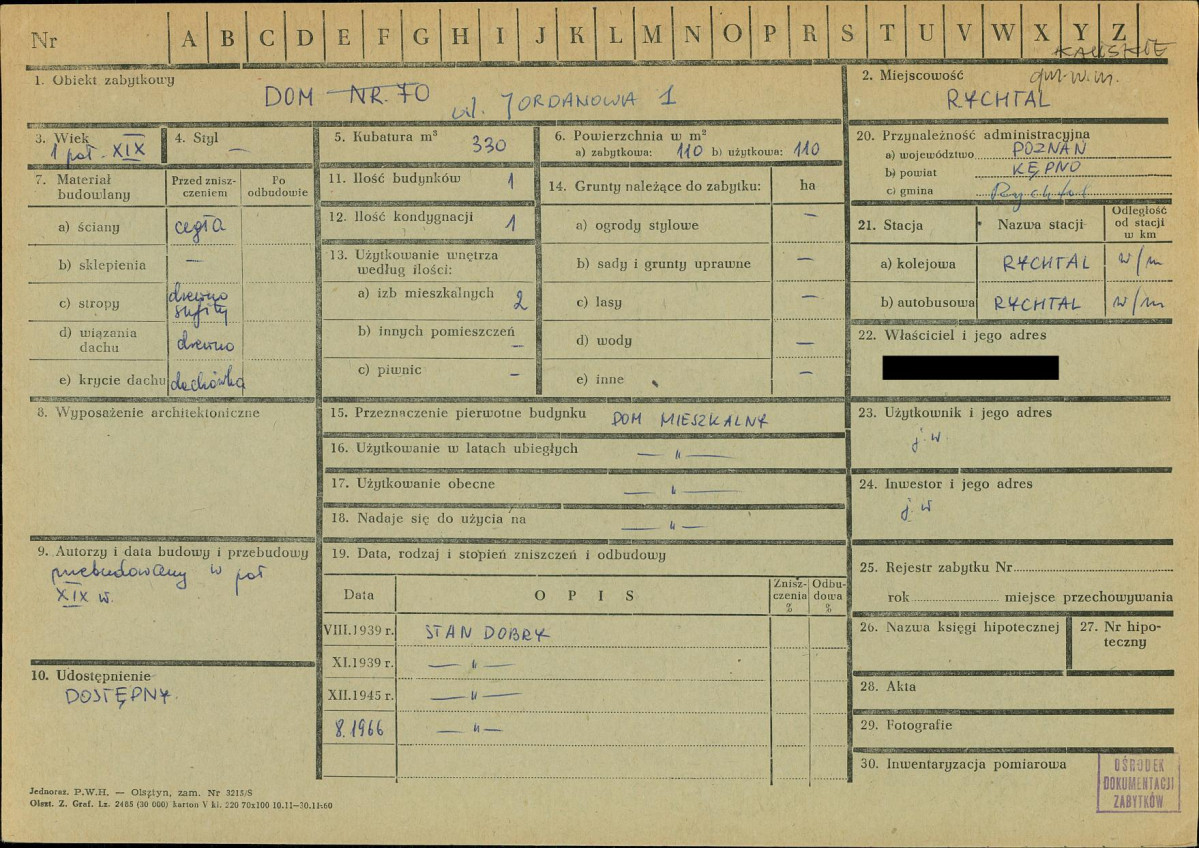 Nr A B C D E F G H I J K L M N O P R S T U V W X Y Z
KALISKIE
1. Obiekt zabytkowy
DOM NR. 70 ul. JORDANOWA 1
2. Miejscowość gm. w.m.
RYCHTAL
3. Wiek
1 poł. XIX
4. Styl
—
5. Kubatura m³ 330
6. Powierzchnia w m²
a) zabytkowa: 110 b) użytkowa: 110
20. Przynależność administracyjna
a) województwo POZNAŃ
b) powiat KĘPNO
c) gmina Rychtal
7. Materiał budowlany
Przed zniszczeniem
Po odbudowie
a) ściany cegła
b) sklepienia —
c) stropy drewno sufity
d) wiązania dachu drewno
e) krycie dachu dachówka
11. Ilość budynków 1
12. Ilość kondygnacji 1
13. Użytkowanie wnętrza według ilości:
a) izb mieszkalnych 2
b) innych pomieszczeń –
c) piwnic –
14. Grunty należące do zabytku: ha
a) ogrody stylowe —
b) sady i grunty uprawne —
c) lasy —
d) wody —
e) inne —
21. Stacja Nazwa stacji Odległość od stacji w km
a) kolejowa RYCHTAL w/m
b) autobusowa RYCHTAL w/m
22. Właściciel i jego adres
8. Wyposażenie architektoniczne
15. Przeznaczenie pierwotne budynku DOM MIESZKALNY
16. Użytkowanie w latach ubiegłych — " —
17. Użytkowanie obecne — " —
18. Nadaje się do użycia na — " —
23. Użytkownik i jego adres
j. w.
24. Inwestor i jego adres
j. w
9. Autorzy i data budowy i przebudowy
przebudowany w poł
XIX w.
19. Data, rodzaj i stopień zniszczeń i odbudowy
Data OPIS Zniszczenia % Odbudowa %
VIII.1939 r. STAN DOBRY
XI.1939 r. — " —
XII.1945 r. — " —
8.1966 — " —
25. Rejestr zabytku Nr
rok miejsce przechowywania
26. Nazwa księgi hipotecznej
27. Nr hipoteczny
10. Udostępnienie
DOSTĘPNY.
28. Akta
29. Fotografie
30. Inwentaryzacja pomiarowa
OŚRODEK
DOKUMENTACJI
ZABYTKÓW
Jednoraz. P.W.H. — Olsztyn, zam. Nr 3215/S
Olszt. Z. Graf. Lz. 2485 (30 000) karton V kl. 220 70x100 10.11—30.11.60